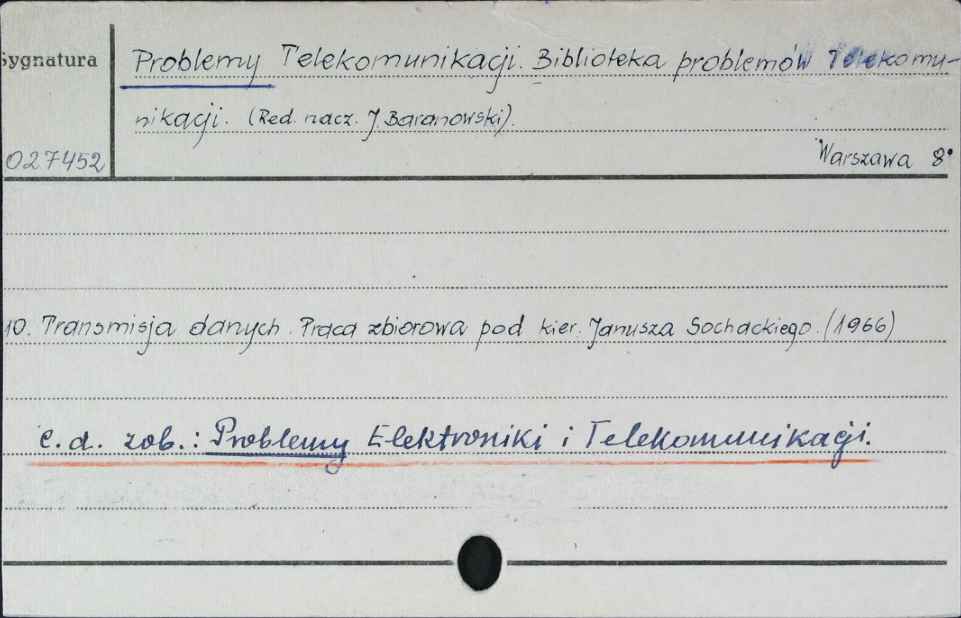 Sygnatura
Problemy Telekomunikacji. Biblioteka problemów Telekomu-
nikacji. (Red. nacz. J Baranowski).
027452
Warszawa 8°
10. Transmisja danych. Praca zbiorowa pod kier. Janusza Sochackiego. (1966)
c.d. zob.: Problemy Elektroniki i Telekomunikacji.